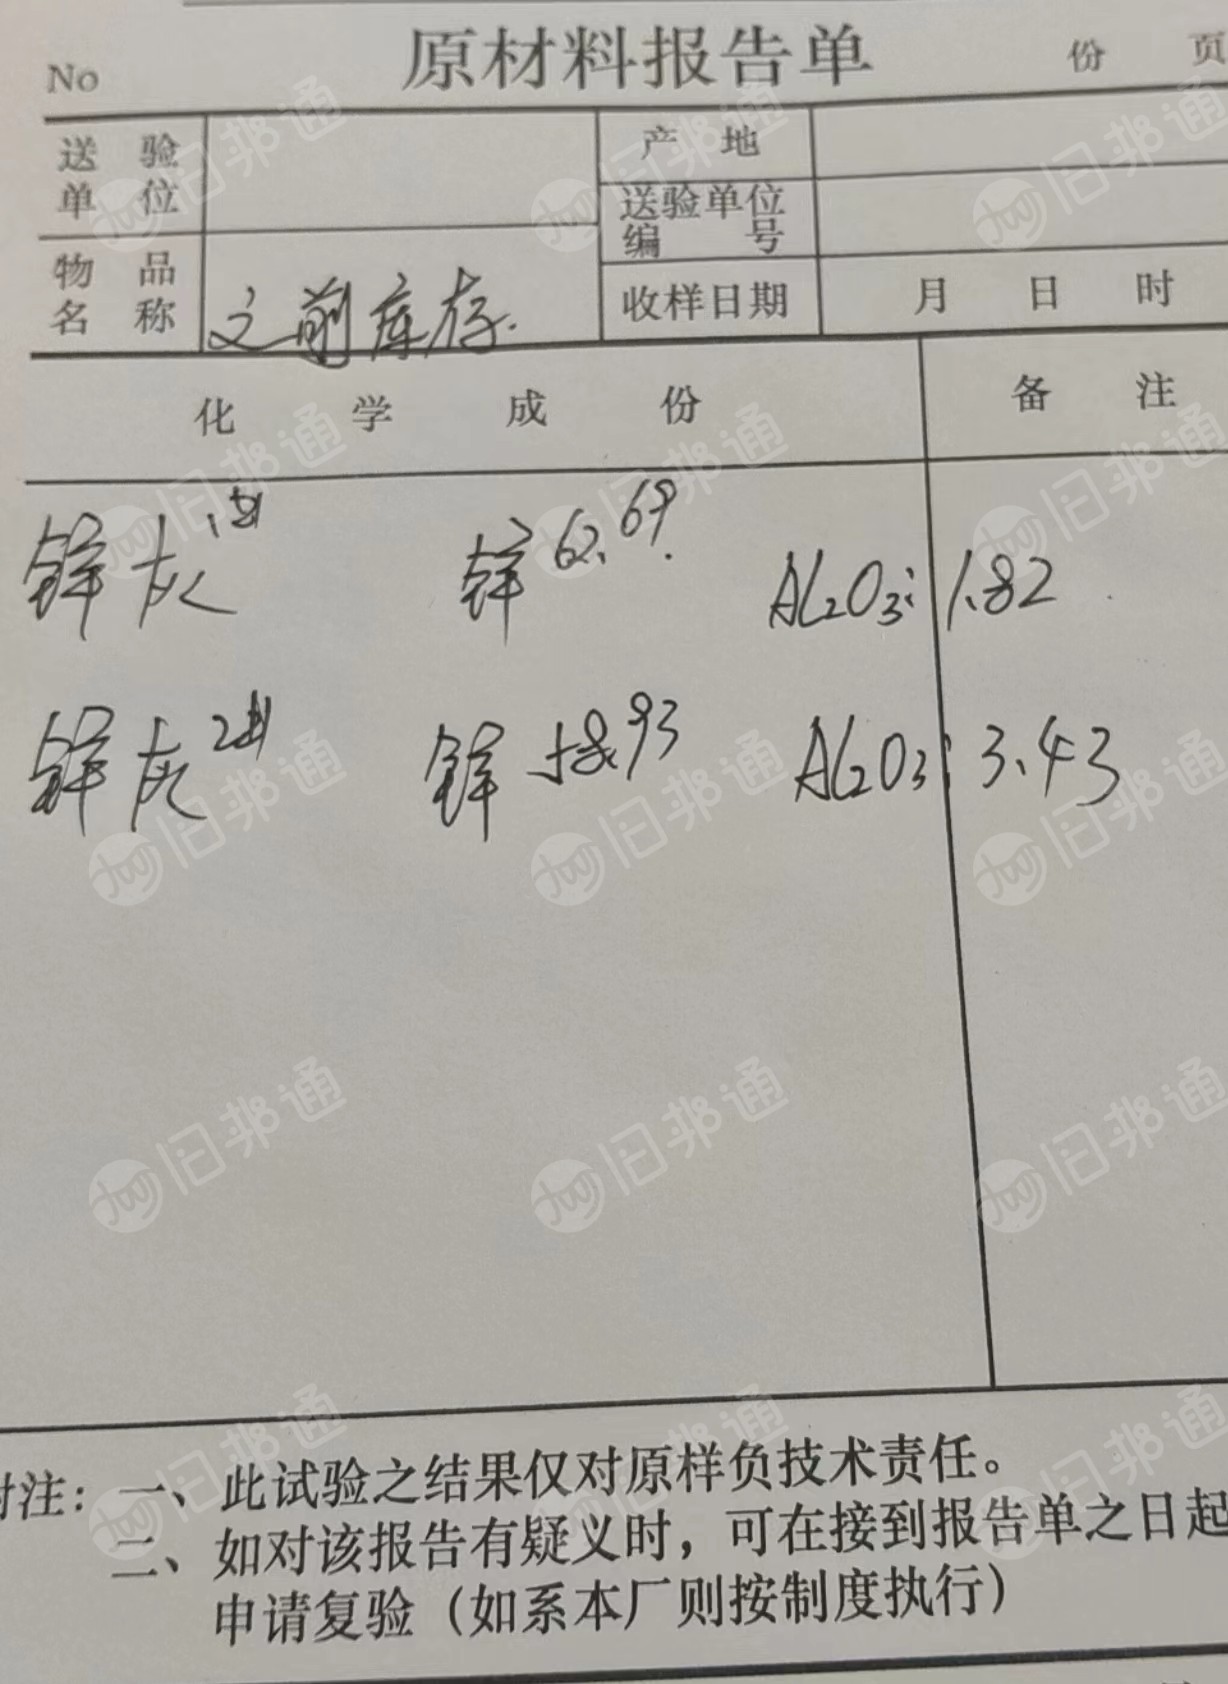 原材料报告单
No 份 页
送验单位 产地
送验单位编号
物品名称 文前库存. 收样日期 月 日 时
化学成份 备注
锌灰1# 锌62.69. AL2O3: 1.82
锌灰2# 锌58.93 AL2O3: 3.43
附注：一、此试验之结果仅对原样负技术责任。
二、如对该报告有疑义时，可在接到报告单之日起
申请复验（如系本厂则按制度执行）
旧邦通